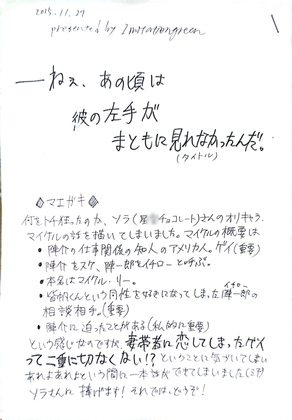 2015.11.27
presented by Imitationgreen
―ねぇ、あの頃は
彼の左手が
まともに見れなかったんだ。
(タイトル)
◇マエガキ◇
何をトチ狂ったのか、ソラ(星 チョコレート)さんのオリキャラ、
マイケルの話を描いてしまいました。マイケルの概要は
・陣介の仕事関係の知人のアメリカ人。ゲイ(重要)
・陣介をスケ、陣一郎をイチローと呼ぶ。
・本名はマイケル・リー。
・皆明くんという同性を好きになってしまった陣一郎の
イチロー
相談相手。(重要)
・陣介に迫ったことがある(私的に重要)
という感じなのですが、妻帯者に恋してしまったゲイ
って二重に切なくない!?ということに気づいてしまい
あれよあれよという間に一本話ができてしまいました(ミデ)
ソラさんに捧げます! それでは、どうぞ!